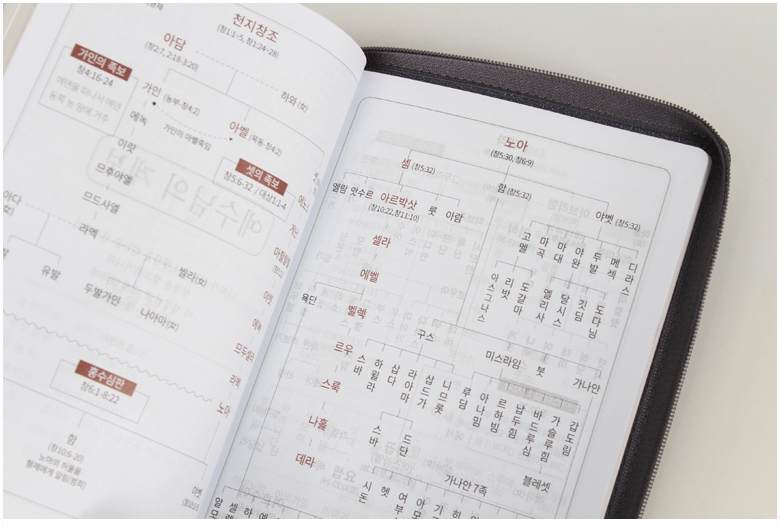 천지창조
(창1:1~5, 창1:24~28)
아담
(창2:7, 2:18-3:20)
하와(女)
가인의 족보
창4:16-24
에덴을 떠나서 에덴
동쪽 놋 땅에 거주
가인 (농부-창4:2)
아벨 (목동-창4:2)
가인이 아벨죽임
에녹
이랏
므후야엘
므드사엘
라멕
셋의 족보
창5:6-32 / 대상1:1-4
아다
(女)
씰라(女)
유발
두발가인
나아마(女)
노아
홍수심판
창6:1-8:22
함
(창10:6-20)
노아의 허물을
형제에게 알림(범죄)
노아
(창5:30, 창6:9)
셈 (창5:32)
함 (창5:32)
야벳 (창5:32)
엘람
앗수르
아르박삿
(창10:22,창11:10)
룻
아람
셀라
에벨
욕단
벨렉
르우
스룩
나홀
데라
고멜
마곡
마대
야완
두발
메섹
디라스
아스그나스
리밧
도갈마
엘리사
달시스
깃딤
도다님
구스
미스라임
붓
가나안
스바
하윌라
삽다
라아마
삽드가
니므롯
루딤
아나밈
르하빔
납두힘
바드루심
가슬루힘
갑도림
스바
드단
블레셋
가나안 7족
시돈
헷